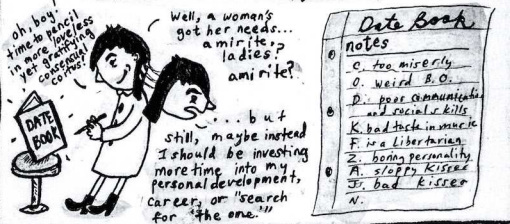 oh, boy!
time to pencil
in more loveless
yet gratifying
consensual
coitus!
Well, a woman's
got her needs...
amirite,
ladies?
amirite?
DATE
BOOK
...but
still, maybe instead
I should be investing
more time into my
personal development,
career, or "search
for "the one.""
Date Book
notes
C. too miserly
O. weird B.O.
D. poor communication
and social skills
K. bad taste in music
F. is a libertarian
Z. boring personality
A. sloppy kisses
J. bad kisser
N.